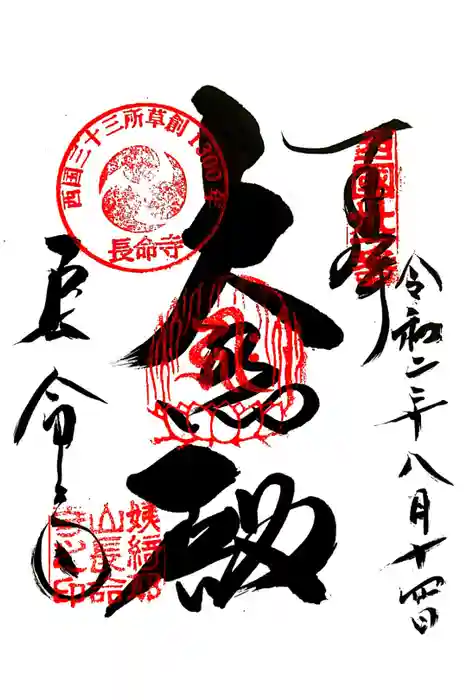 奉拝
令和二年八月十四日
西国三十三所草創1300年
長命寺
大悲殿
長命寺
姨綺耶
山長命
寺之印